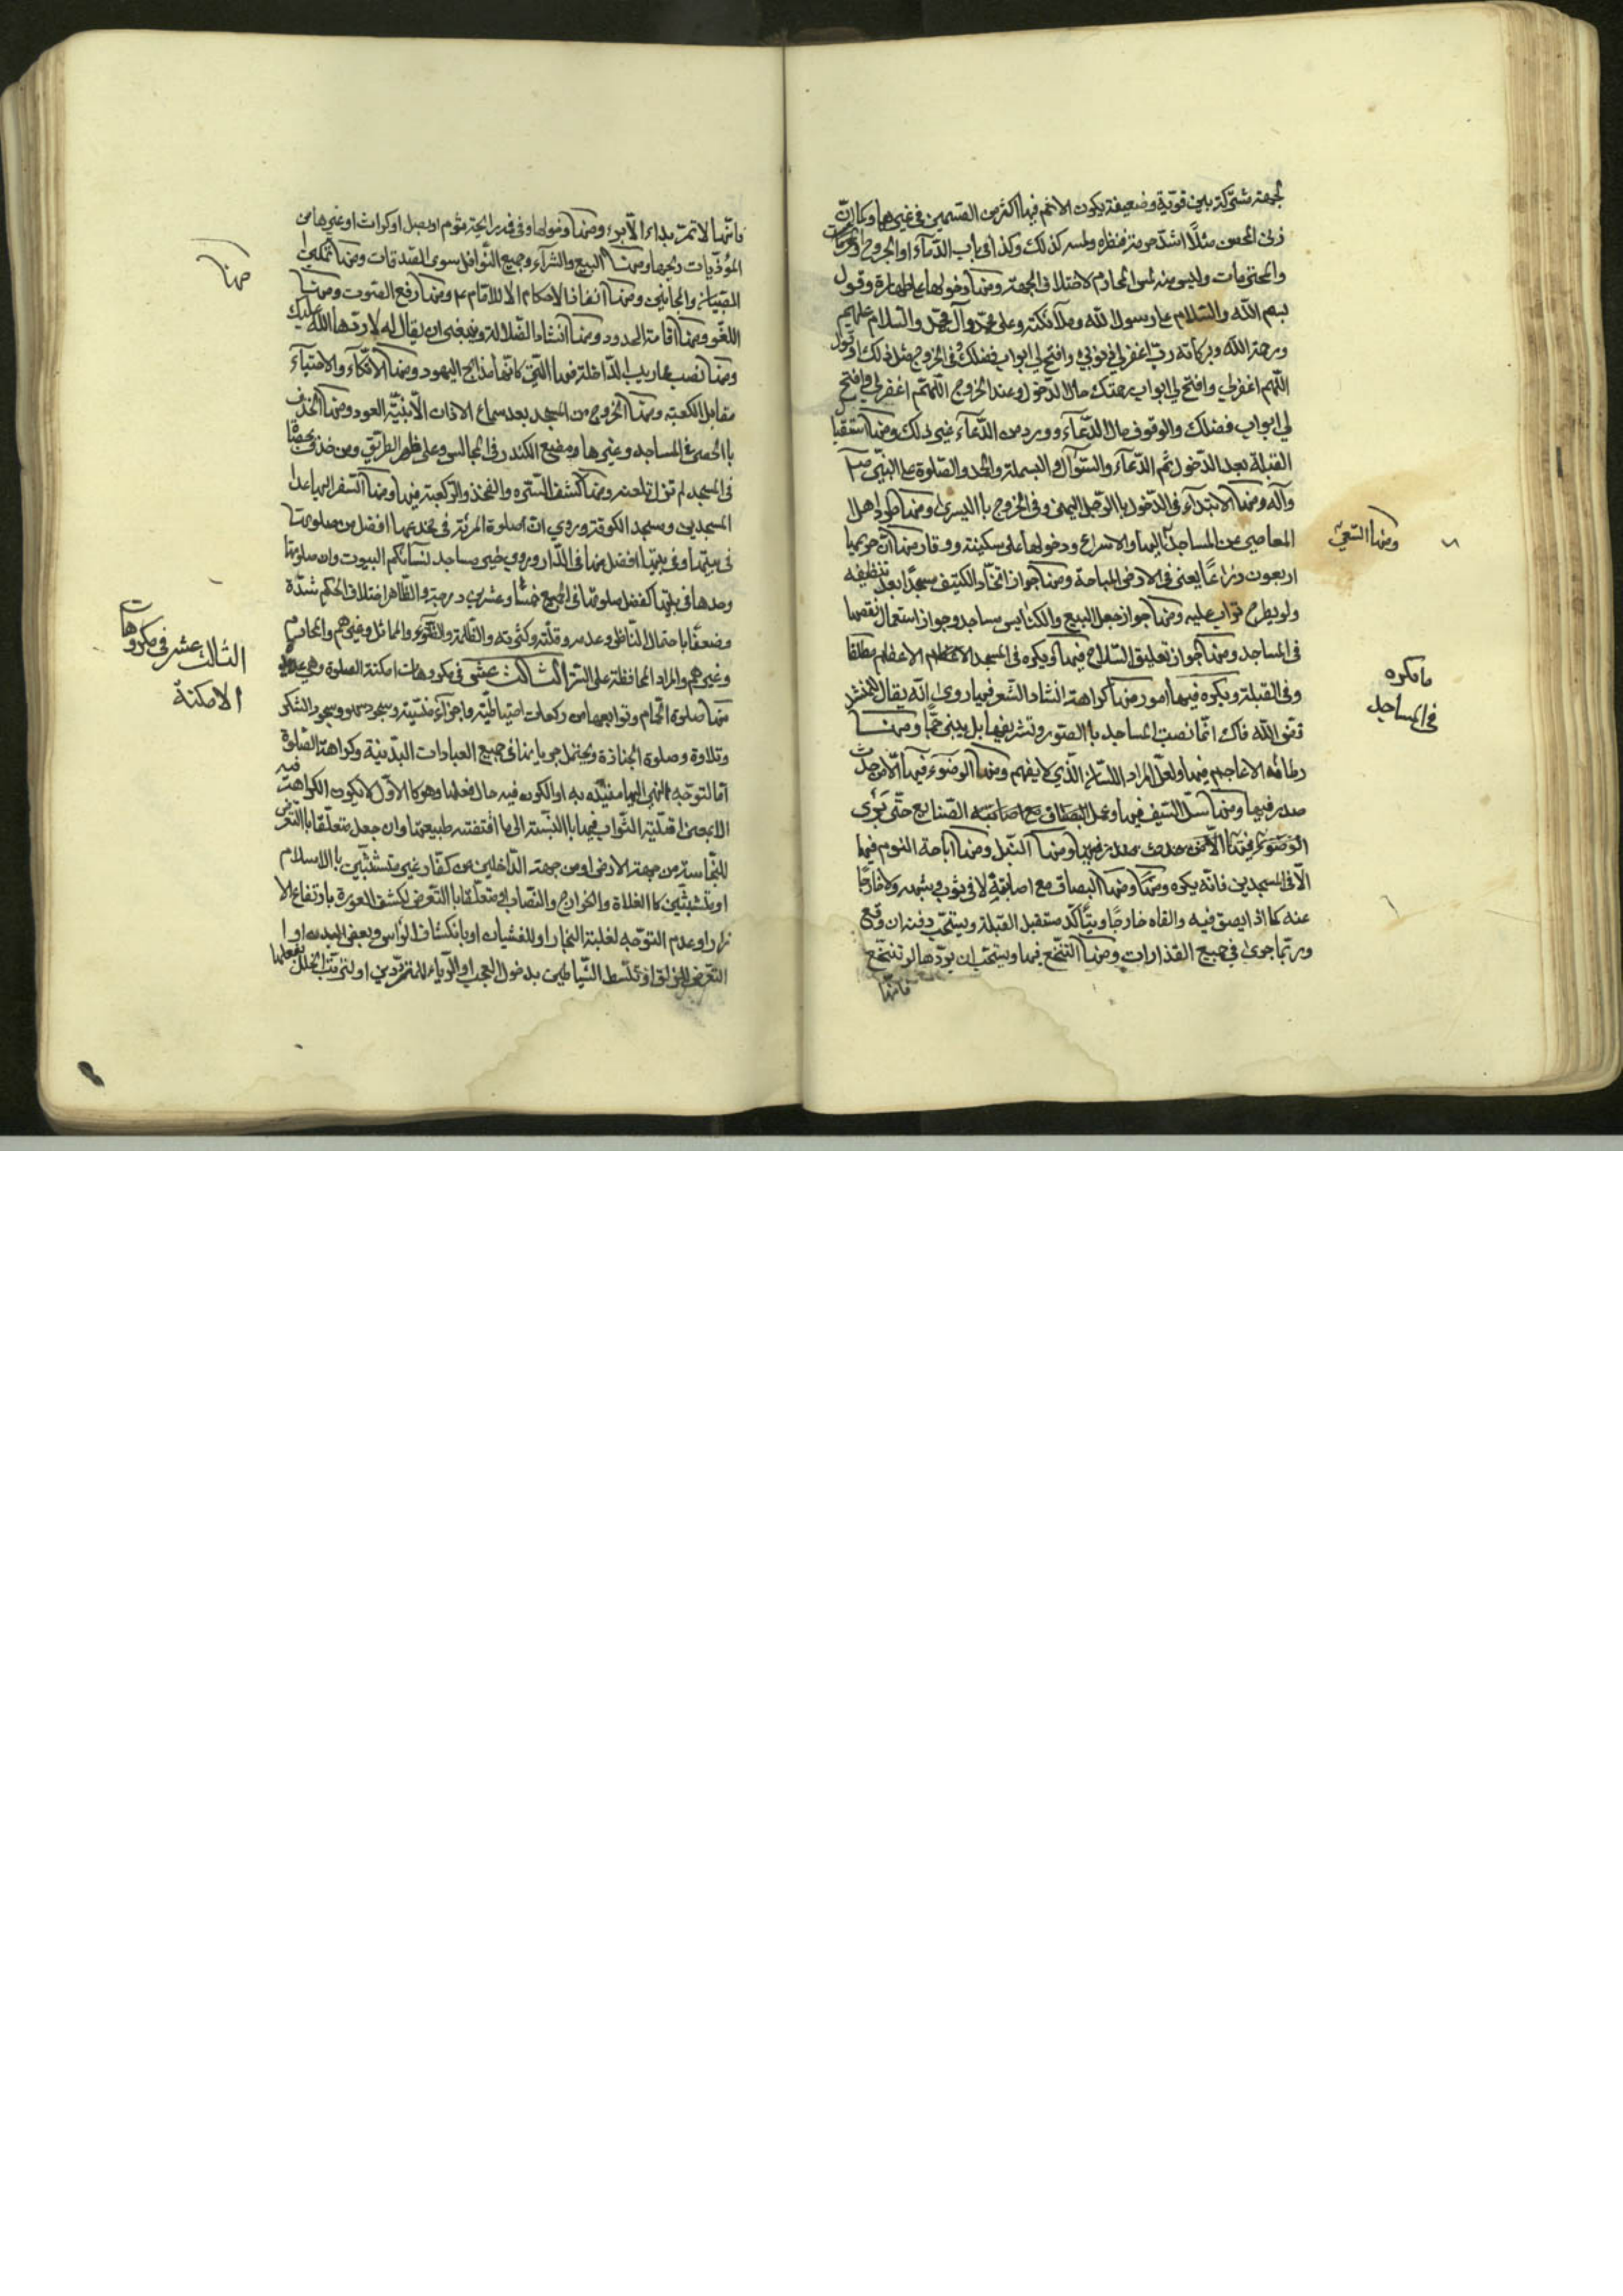 لجهة مشتركة بين قوية وضعيفة يكون الاثم فيها اكثر من القسمين في غيرها وكما ان
زنى المحصن مثلا اشد حرمته منظره ولمسه كذلك وكذا في باب الدماء او الجروح او
والمحترمات وليس منه لمس المحارم لاختلاف الجهة ومنها دخولها على طهارة وقول
بسم الله والسلام على رسول الله وملآئكته وعلى محمد وآل محمد والسلام عليهم
ورحمة الله وبركاته رب اغفر لي ذنوبي وافتح لي ابواب فضلك وفي الخروج مثل ذلك او قول
اللهم اغفر لي وافتح لي ابواب رحمتك حال الدخول وعند الخروج اللهم اغفر لي وافتح
لي ابواب فضلك والوقوف حال الدعآء وورد من الدعآء غير ذلك ومنها استقبال
القبلة بعد الدخول ثم الدعآء والسؤال والبسملة والحمد والصلوة على النبي ص
وآله ومنها الابتدآء في الدخول بالرجل اليمنى وفي الخروج باليسرى ومنها طرد اهل
المعاصي من المساجد اليها والاسراع ودخولها على سكينة ووقار ومنها ان حريمها
ومنها السعي
اربعون ذراعًا يعنى في الارض المباحة ومنها جواز اتخاذ الكنيف مسجدًا بعد تنظيفه
ولو بطرح تراب عليه ومنها جواز جعل البيع والكنايس مساجد وجواز استعمال نقضها
في المساجد ومنها جواز تعليق السلاح فيها ويكره في المسجد الاعظم مطلقا
ما يكره
في المساجد
وفي القبلة ويكره فيها امور منها كراهة انشاد الشعر فيها روى انه يقال للمنشد
فض الله فاك انما نصبت المساجد بالصور وتشريفها بل يبنى جمًّا ومنها
رطانة الاعاجم فيها ولعل المراد اللسان الذي لا يفهم ومنها الوضوء فيها الا من حدث
صدر فيها ومنها سل السيف فيها وعمل الصنايع حتى بَرْي
النبل ومنها اباحة النوم فيها
الا في المسجدين فانه يكره ومنها البصاق مع اصابة لا في ثوب وشبهه ولا خارجًا
عنه كما اذا بصق فيه والقاه خارجًا ويتأكد مستقبل القبلة ويستحب دفنه ان وقع
وربما جرى في جميع القذارات ومنها التنخع فيها ويستحب ان يردّها لو تنخع
فانها
فانها لا تمر بداء الا برء ومنها دخولها وفي فيه رائحة ثوم او بصل او كراث او غيرها من
المؤذيات ريحها ومنها البيع والشرآء وجميع النوافل سوى الصدقات ومنها تمكين
منها
الصبيان والمجانين ومنها انفاذ الاحكام الا للامام ع ومنها رفع الصوت ومنها
اللغو ومنها اقامة الحدود ومنها انشاد الضلالة وينبغي ان يقال له لا ردها الله عليك
ومنها نصب محاريب الداخلة فيها التي كانها مذابح اليهود ومنها الاتكآء والاحتبآء
مقابل الكعبة ومنها الخروج من المسجد بعد سماع الاذان الا بنية العود ومنها الخذف
بالحصى في المساجد وغيرها ومضغ الكندر في المجالس وعلى ظهر الطريق ومن خذف بحصاة
في المسجد لم تزل تلعنه ومنها كشف السرة والفخذ والركبة فيها ومنها السفر اليها عدا
المسجدين ومسجد الكوفة وروي ان صلوة المرئة في مخدعها افضل من صلوتها
في بيتها وفي بيتها افضل منها في الدار وروي خير مساجد نسائكم البيوت وان صلوتها
وحدها في بيتها كفضل صلوتها في الجمع خمسًا وعشرين درجة والظاهر اختلاف الحكم شدّة
وضعفًا باحتمال الناظر وعدمه وقلته وكثرته والظلمة والضوء والمماثل وغيرهم والمحارم
وغيرهم والمراد المحافظة على الستر الثالث عشر في مكروهات امكنة الصلوة وهي عديدة
الثالث عشر في مكروهات
الامكنة
منها صلوة الحمام وتوابعها من ركعات احتياطية واجزآء منسية وسجود سهو وسجود الشكر
وتلاوة وصلوة الجنازة ويحتمل جريانها في جميع العبادات البدنية وكراهة الصلوة فيه
اما لتوجه النهي اليها مقيّده به او الكون فيه حال فعلها وهو كالاول لا يكون الكراهة
الا بمعنى اقلية الثواب فيها بالنسبة الى ما اقتضته طبيعتها وان جعل متعلقا بالتعرض
للنجاسة من جهة الارض او من جهة الداخلين من كفار غير متشبثين بالاسلام
او متشبثين كالغلاة والخوارج والنصاب او متعلقا بالتعرض لكشف العورة بارتفاع الا
زار او عدم التوجه لغلبة البخار او للغشيان او بانكشاف الرأس وبعض البدن او
التعرض للزلق او تسلط الشياطين بدخول العجب او الريآء للمتردّدين او لترتب الخلل بفعلها